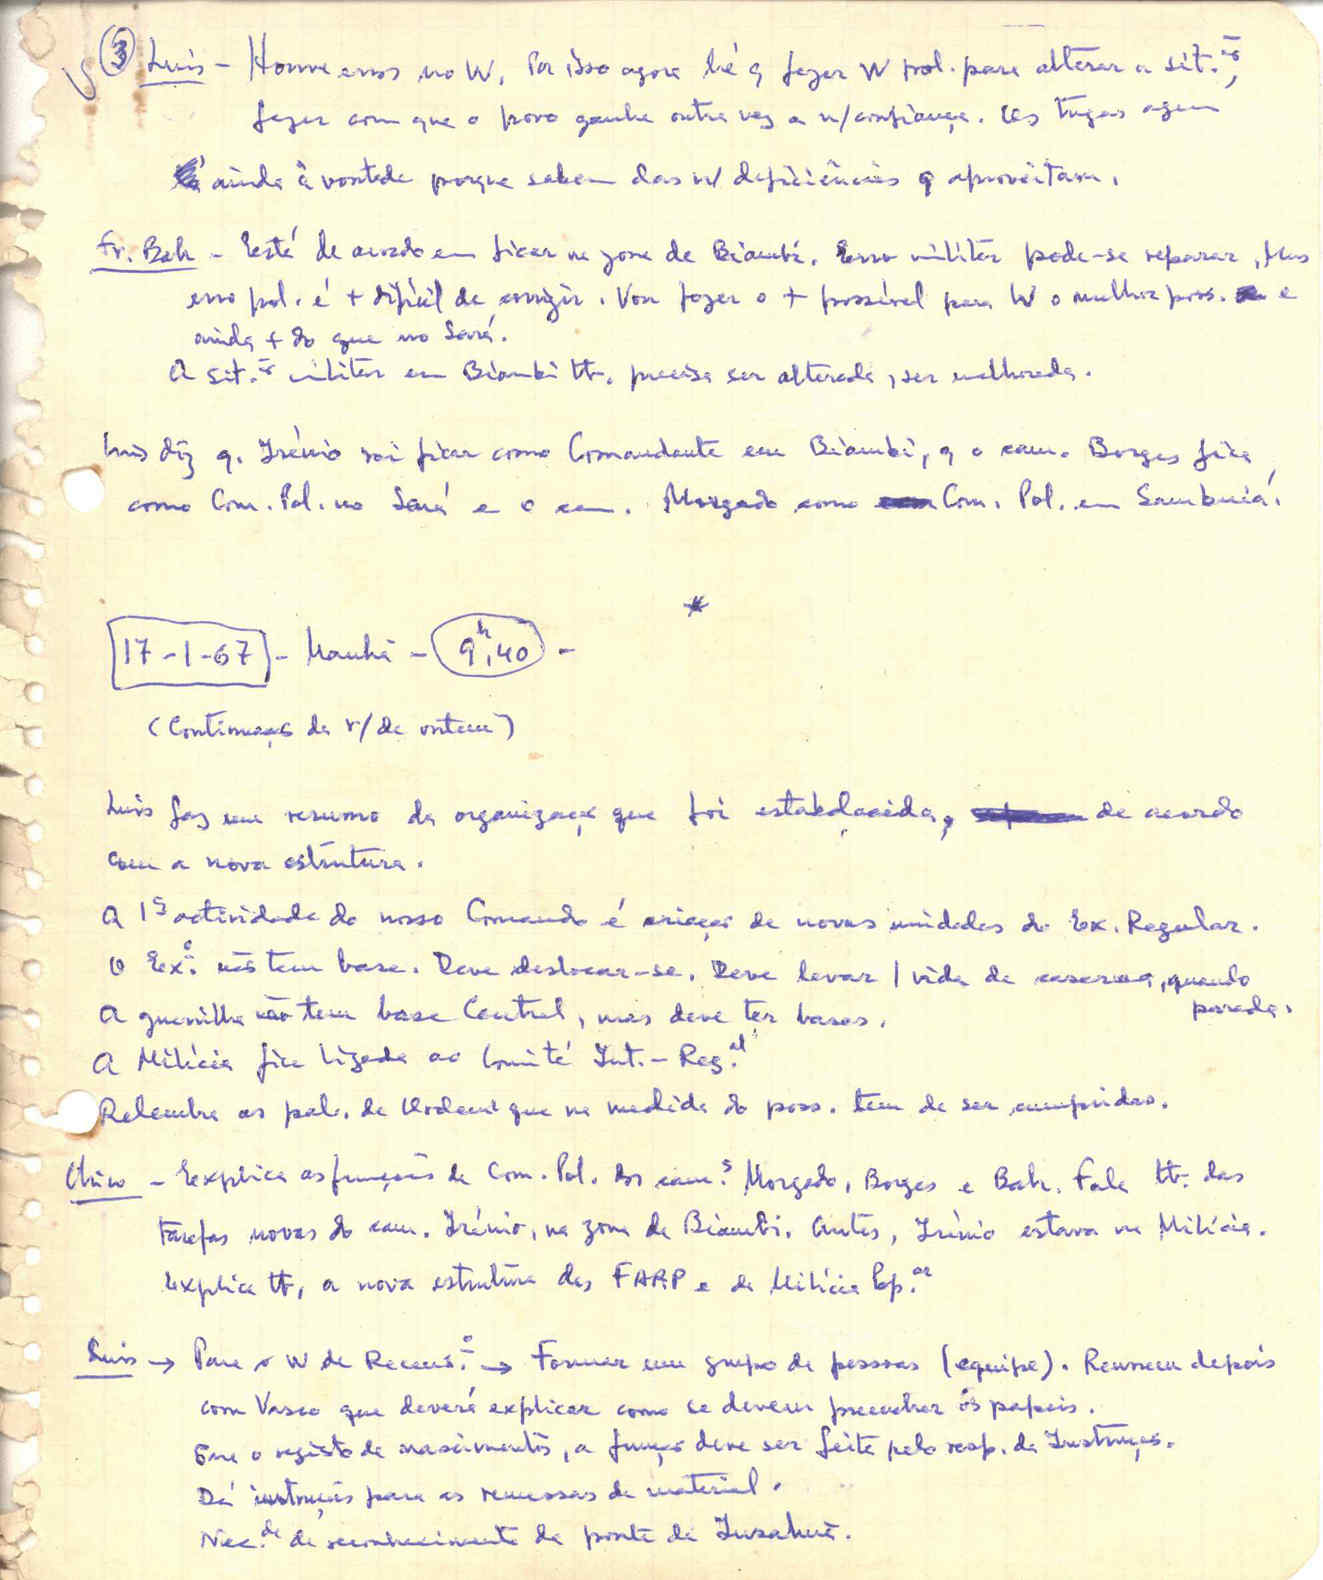 ③ Luís - Houve erros no W. Por isso agora há q fazer W pol. para alterar a sit.ão,
fazer com que o povo ganhe outra vez a n/confiança. Os tugas agem
ainda à vontade porque sabem das n/ deficiências q aproveitam.
Fr. Bah - Está de acordo em ficar na zona de Biambi. Erro militar pode-se reparar, mas
erro pol. é + difícil de corrigir. Vou fazer o + possível para W o melhor poss. e
ainda + do que no Sará.
A sit.ão militar em Biambi tb. precisa ser alterada, ser melhorada.
Luís diz q. Irénio vai ficar como Comandante em Biambi, q o cam. Borges fica
como Com. Pol. no Sará e o cam. Morgado como Com. Pol. em Sambuiá.
*
17-1-67 - Manhã - 9h,40 -
(Continuação da r/ de ontem)
Luís faz um resumo da organização que foi estabelecida, de acordo
com a nova estrutura.
A 1ª actividade do nosso Comando é criação de novas unidades do Ex. Regular.
O Ex.o não tem base. Deve deslocar-se. Deve levar 1 vida de caserna, quando
parada.
A guerrilha não tem base Central, mas deve ter bases.
A Milícia fica ligada ao Comité Int.-Reg.al
Relembra as pal. de Ordem que na medida do poss. tem de ser cumpridas.
Chico - Explica as funções de Com. Pol. dos cam.s Morgado, Borges e Bah. Fala tb. das
tarefas novas do cam. Irénio, na zona de Biambi. Antes, Irénio estava na Milícia.
Explica tb. a nova estrutura das FARP e da Milícia Pop.ar
Luís → Para o W de Recens.o → Formar um grupo de pessoas (equipe). Reunem depois
com Vasco que deverá explicar como se devem preencher os papeis.
o registo de nascimentos, a função deve ser feita pelo resp. da Instrução.
Dá instruções para as remessas de material.
Nec.de de reconhecimento da ponte de